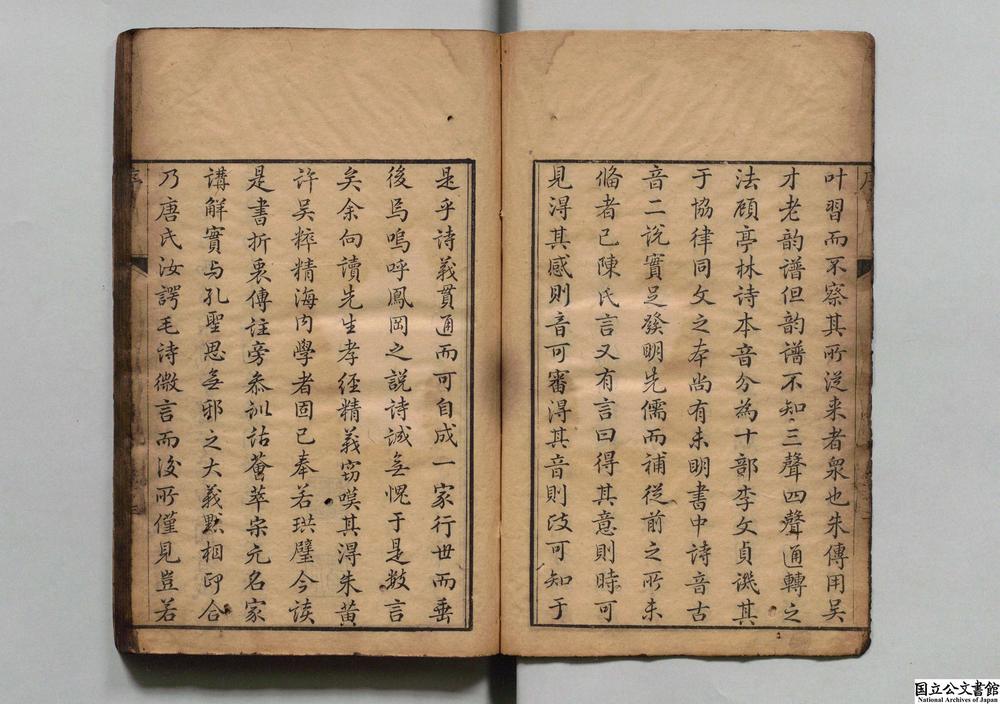 叶習而不察其所從来者衆也朱傳用吴
才老韵譜但韵譜不知三聲四聲通轉之
法顧亭林詩本音分為十部李文貞譏其
于協律同文之本尚有未明書中詩音古
音二說實足發明先儒而補從前之所未
俻者已陳氏言又有言曰得其意則時可
見得其感則音可審得其音則政可知于
是乎詩義貫通而可自成一家行世而垂
後烏嗚呼鳳岡之說詩誠無愧于是数言
矣余向讀先生孝经精義窃嘆其得朱黄
许吴粹精海内學者固已奉若珙璧今读
是書折衷傳註旁叅訓詁薈萃宗元名家
講解實与孔聖思無邪之大義黙相印合
乃唐氏汝諤毛詩微言而後所僅見豈若
序
序
国立公文書館
National Archives of Japan